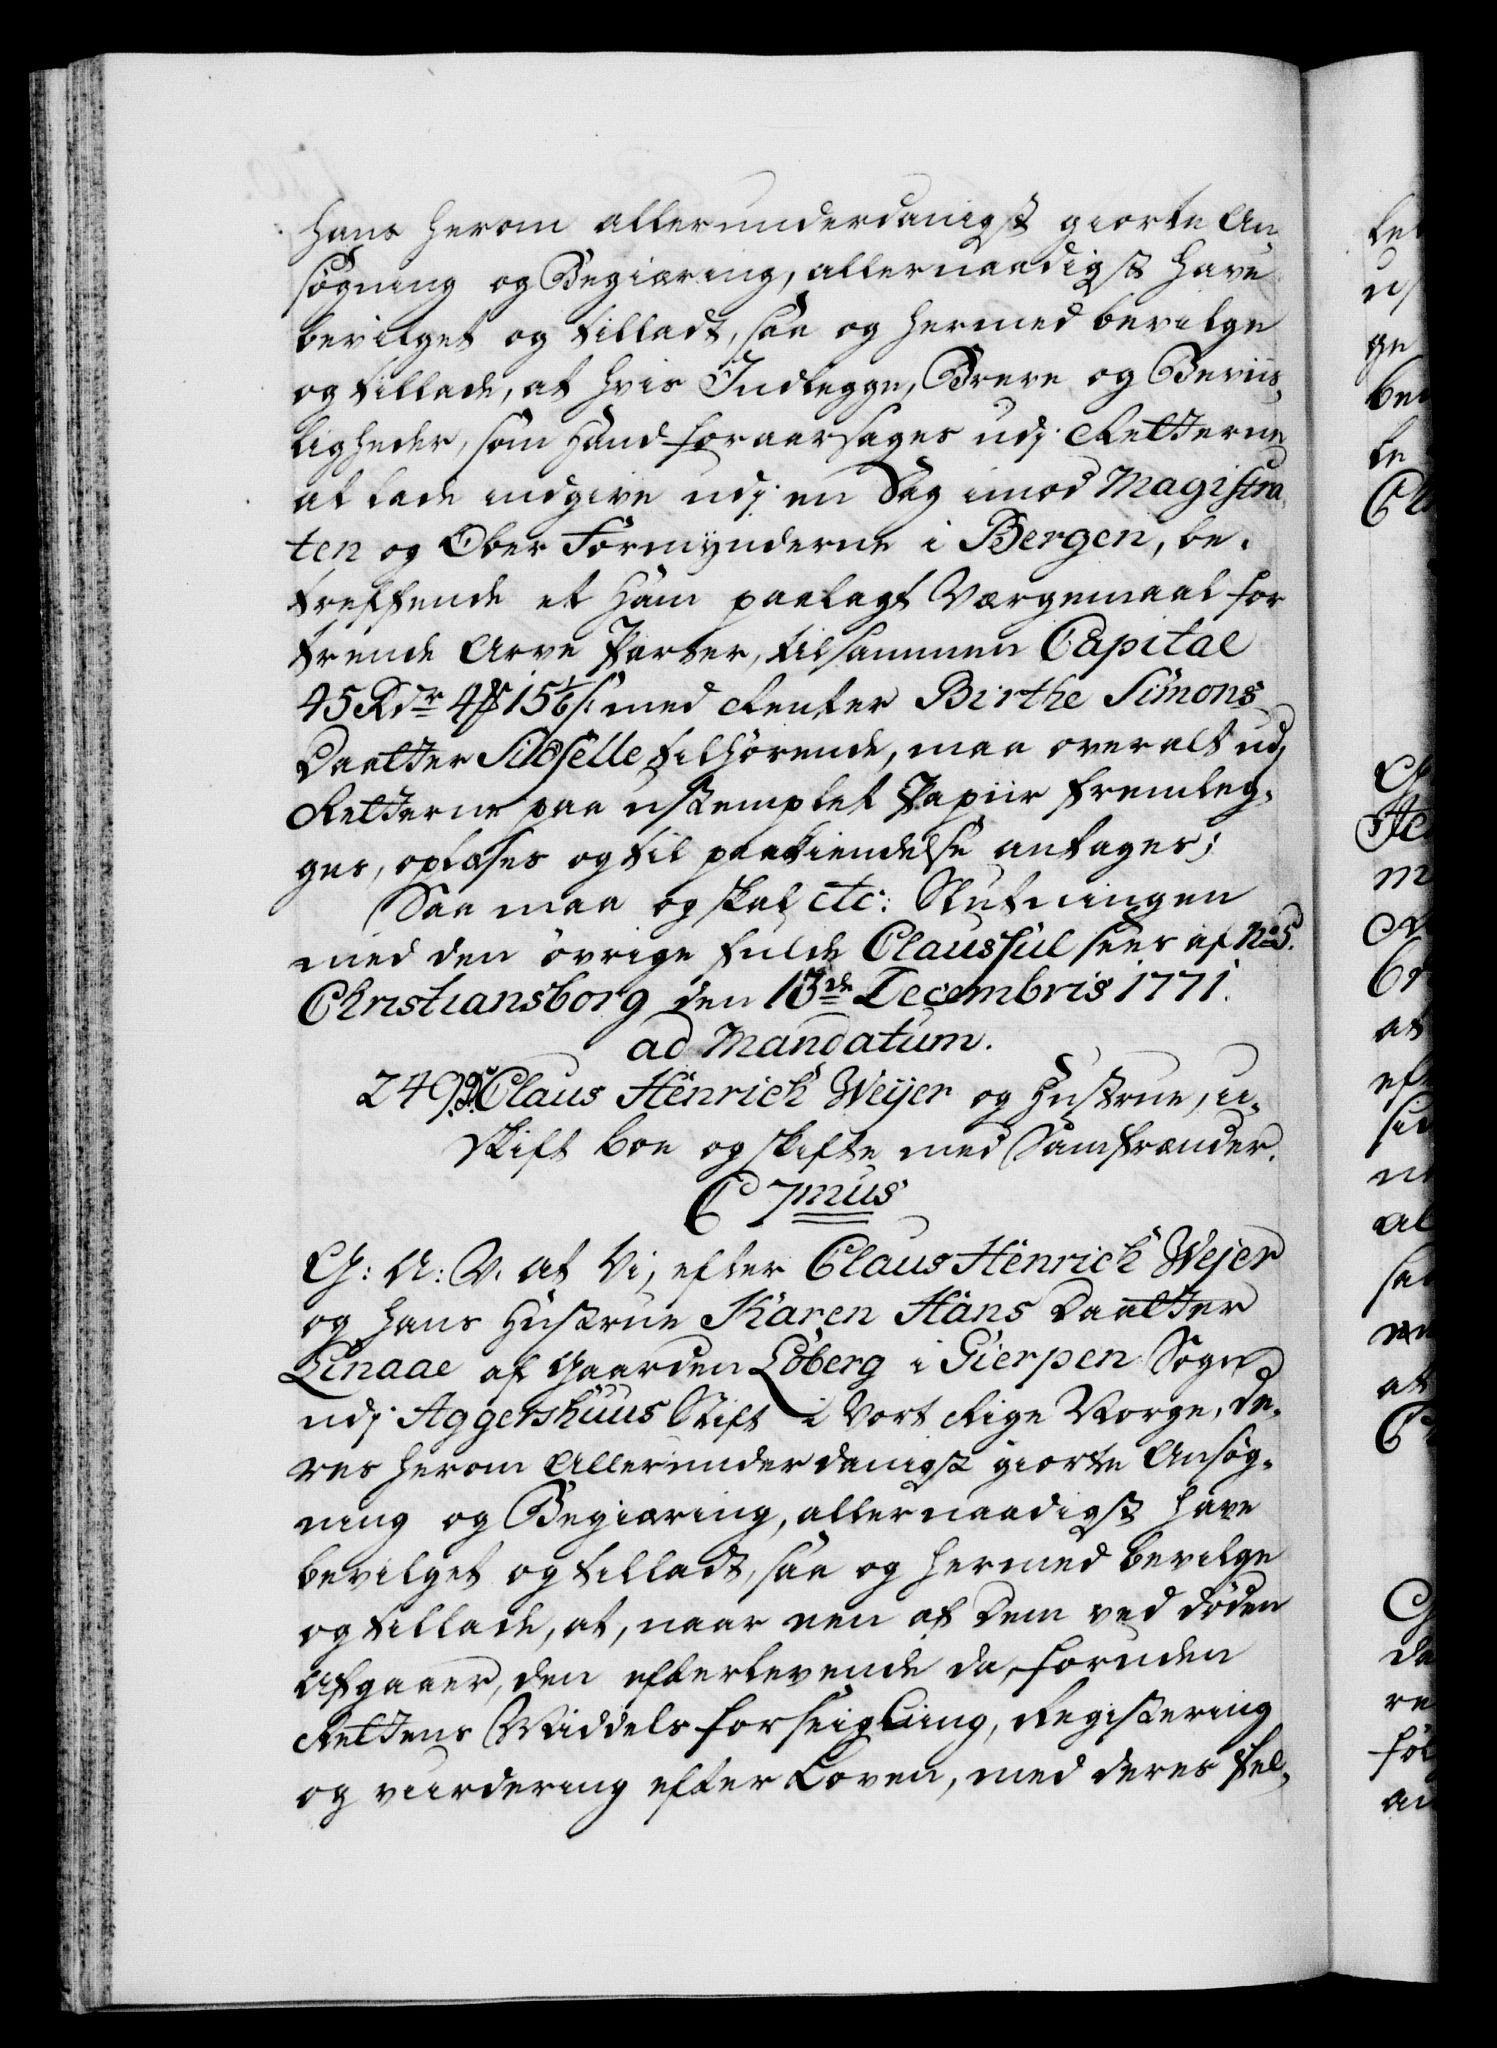 hans herom allerunderdanigst giorte An-
søgning og Begiæring, allernaadigst have
bevilget og tilladt, saa og hermed bevilge
og tillade, at hvis Indlegge, Breve og Beviis-
ligheder, som hand foraarsages udj Retterne
at lade indgive udj en Sag imod Magistra-
ten og Ober Formynderne i Bergen, be-
treffende et ham paalagt Værgemaal for
trende Arve Parter, tilsammen Capital
45 Rdr 4 ₰ 15 1/6 s: med Renter Birthe Simons
Daatter tilhørende, maa overalt udj
Retterne paa ustemplet Papiir fremleg-
ges, oplæses og til paakiendelse antages;
Saa maa og skal etc: Slutningen
med den øvrige fulde Claussul sees af No 5.
Christiansborg den 13de Decembris 1771.
ad Mandatum.
249. Claus Henrich Weyer og Hustrue, u-
skift boe og skifte med Samfrænder.
C 7mus
G: A: V. at Vi, efter Claus Henrich Wejer
og hans Hustrue Karen Hans Daatter
Linaae af Gaarden Løberg i Gierpen Sogn
udj Aggershuus Stift i Vort Rige Norge, De-
res herom Allerunderdanigst giorte Ansøg-
ning og Begiæring, allernaadigst have
bevilget og tilladt, saa og hermed bevilge
og tillade, at, naar een af Dem ved døden
Afgaaer, den efterlevende da, foruden
Rettens Middels forseigling, Registering
og vurdering efter Loven, med deres fel-